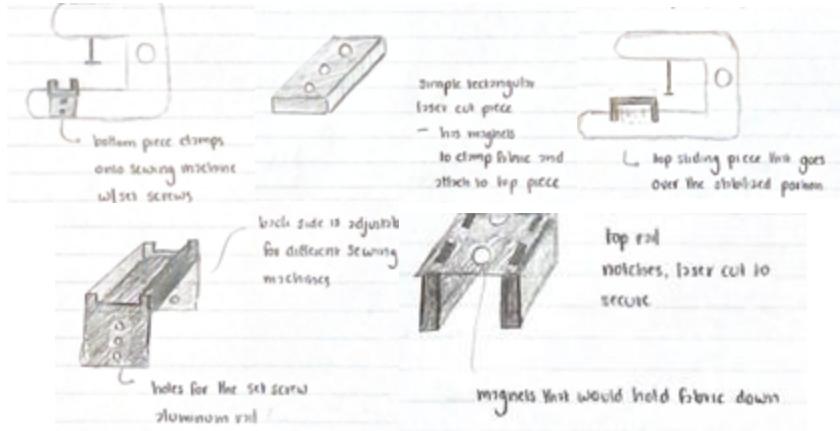 bottom piece clamps
onto sewing machine
w/set screws
simple rectangular
laser cut piece
- has magnets
to clamp fabric and
attach to top piece
top sliding piece that goes
over the stabilized portion
back side is adjustable
for different sewing
machines
holes for the set screw
aluminum rail
top rail
notches, laser cut to
secure
magnets that would hold fabric down